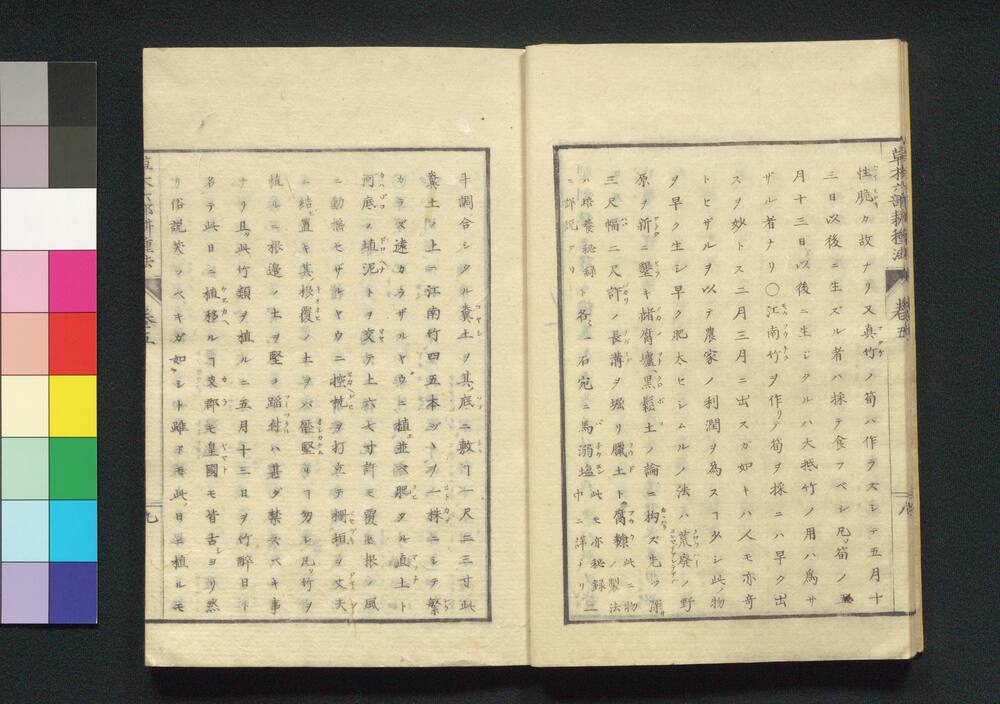 性脆カ故ナリ又真竹ノ筍ハ作ラズシテ五月十
三日以後ニ生ズル者ハ採テ食フベシ凡ソ筍ノ五
月十三日以後ニ生シタルハ大抵竹ノ用ハ為サ
ザル者ナリ〇江南竹ヲ作リテ筍ヲ採ニハ早ク出
スヲ妙トス二月三月ニ出スガ如キハ人モ亦奇
トヒザルヲ以テ農家ノ利潤ヲ為スヿ少シ此ノ物
ヲ早ク生シ早ク肥太ヒシムルノ法ハ荒廃ノ野
原ヲ新ニ墾キ諸腐壚黒鬆土ノ論ニ拘ズ先ヅ深サ
三尺幅二尺許ノ長溝ヲ堀リ臘土ト腐糠ノ製法此ニ物
ハ培養秘録ト各一石宛ニ馬溺塩此モ亦秘録
中ニ詳ナリ二
ニ詳説アリ
草木六部耕種法 巻五
八
斗調合シタル糞土ヲ其底ニ敷ヿ一尺二三寸此
糞土ノ上ニ江南竹四五本ヅヽヲ一株ニシテ繁
カラズ遠カラザルヤウニ植並ベ肥タル真土ト
河底ノ埴泥トヲ交テ上六七寸許モ覆ヒ根ノ風
ニ動揺セザルヤウニ控杭ヲ打立テ柵垣ヲ丈夫
ニ結置キ其根覆ノ土ヲバ壓堅ルヿ勿レ凡竹ヲ
植ルニ根邉ノ土ヲ堅ク踏付ハ甚ダ禁スベキ事
ナリ且ツ此竹類ヲ植ルニ五月十三日ヲ竹醉日ト
名テ此日ニ植移ルヿ支那モ皇國モ皆古ヨリ然
リ俗説笑ツベキガ如シト雖ドモ此ノ日ニ植ルモ
草木六部耕種法 巻五
九